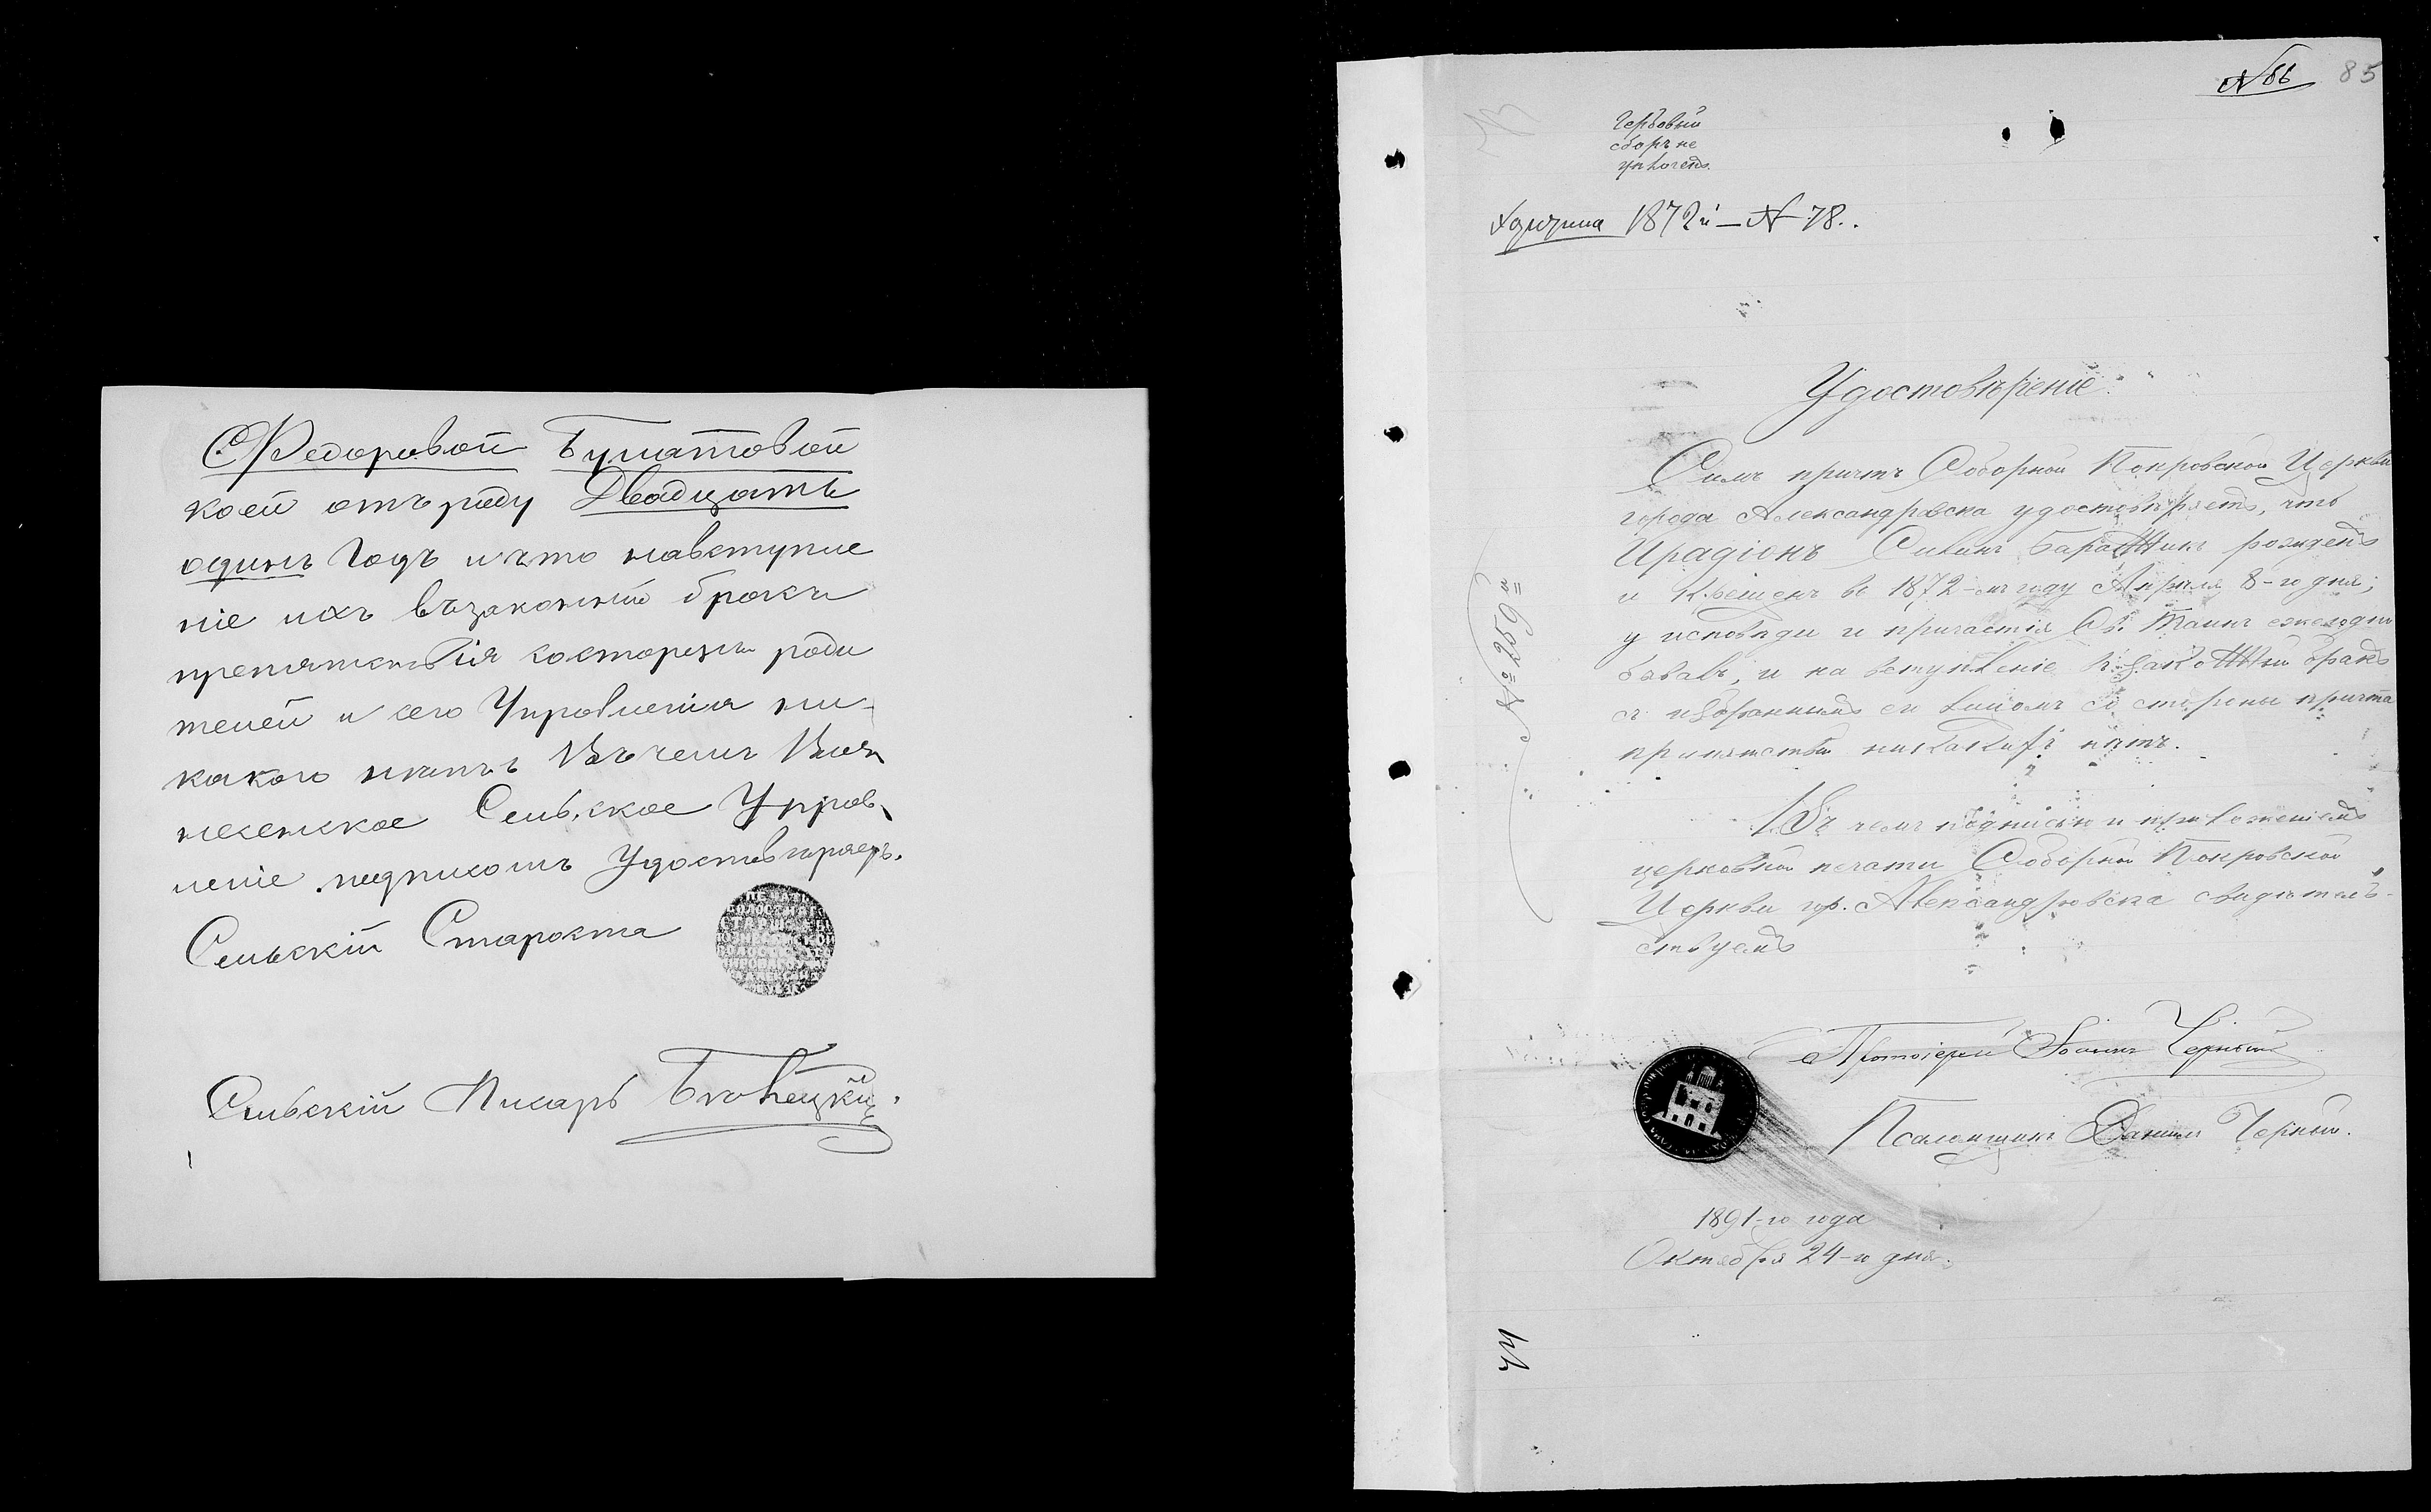 Федоровой Булатовой
коей отъ роду Двадцать
одинъ Годъ и что навступле
ніе ихъ възаконный бракъ
препятствія состороны роди
телей и сего Управленія ни-
какого нѣтъ Въ чемъ Воз
несенское Сельское Управ
леніе подписомъ Удостовѣряетъ.
Сельскій Староста
Сельскій Писарь
№ 66 85
Гербовый
сборъ не
уплоченъ.
1872 й — № 78.
Удостовѣреніе.
Симъ причтъ Соборной Покровской Церкви
города Александровска удостовѣряетъ, что
Ирадіонъ рожденъ
и Крещенъ въ 1872-мъ году Апрѣля 8-го дня;
у исповѣди и причастія Св. Таинъ ежегодно
бывалъ, и на вступленіе въ законный бракъ
съ избраннымъ ею лицомъ со стороны причта
припятствій никакихъ нѣтъ.
Въ чемъ подписью и приложеніемъ
церковной печати Соборной Покровской
Церкви гор. Александровска свидѣтель-
ствуемъ
№ 259
Протоіерей Іоаннъ Черный
Псаломщикъ Даніилъ Черный.
1891-го года
Октября 24-го дня.